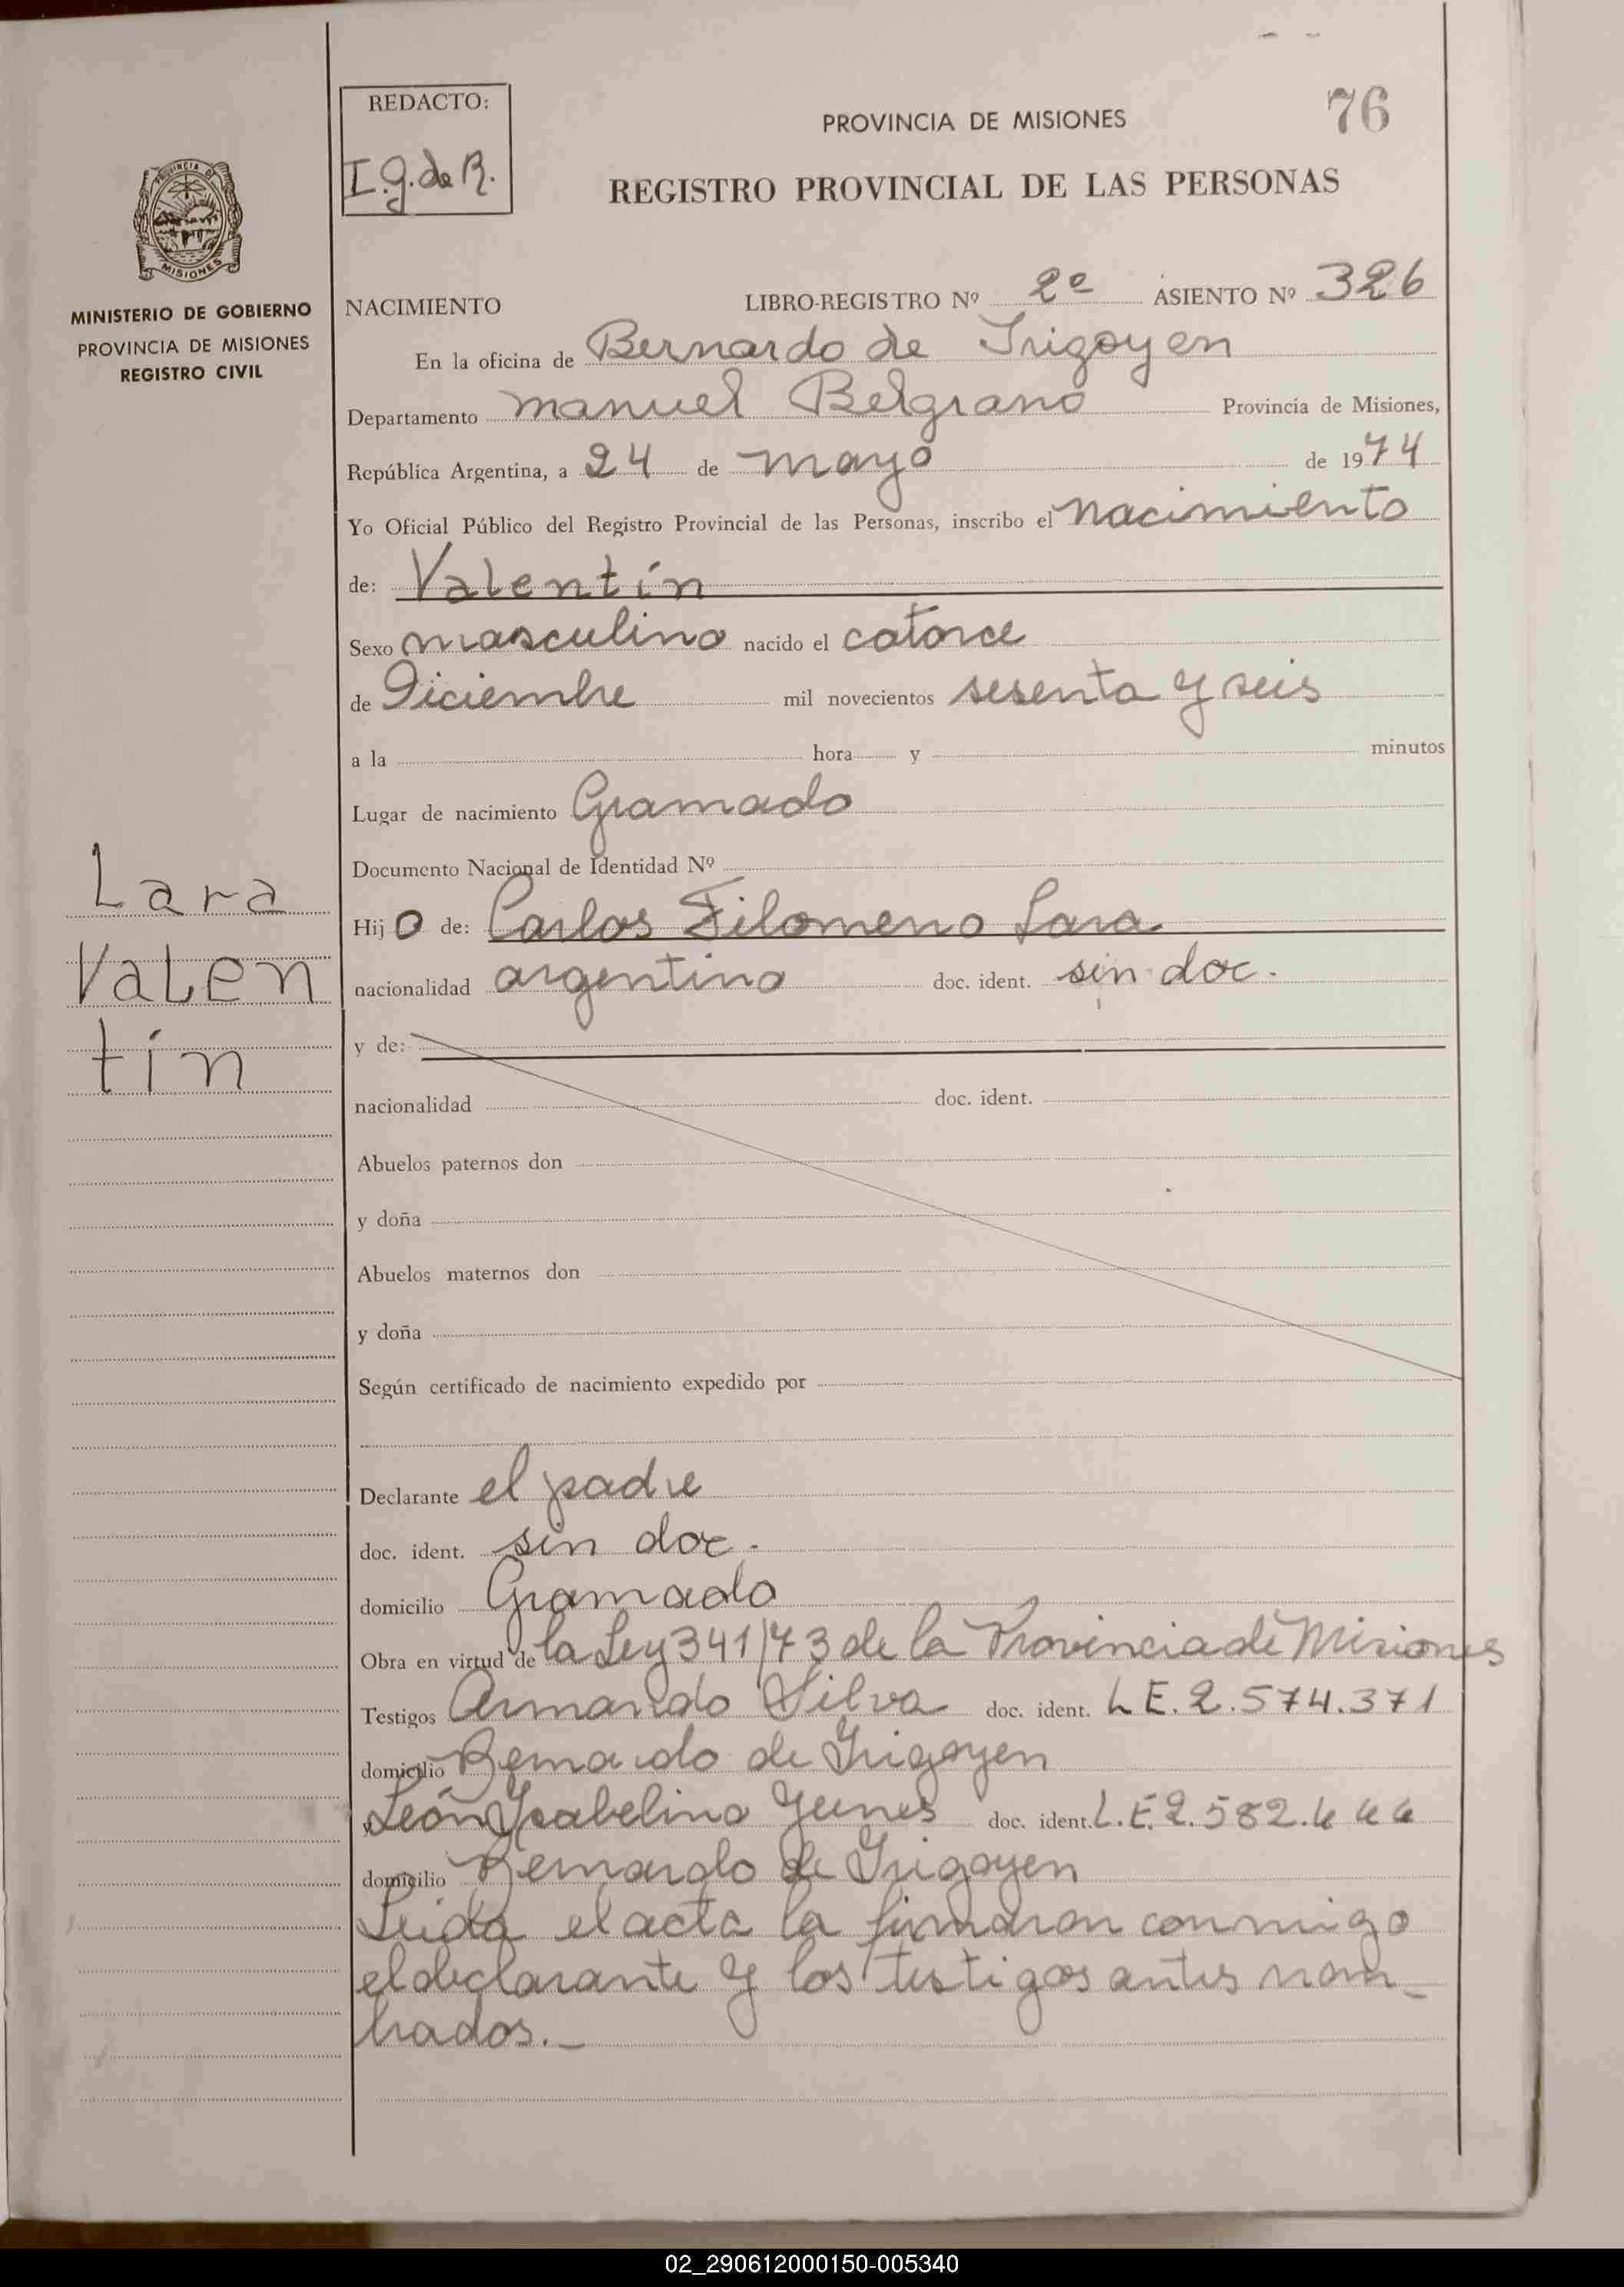 76
REDACTO:
I. g. de R.
PROVINCIA DE MISIONES
REGISTRO PROVINCIAL DE LAS PERSONAS
PROVINCIA DE
MISIONES
MINISTERIO DE GOBIERNO
PROVINCIA DE MISIONES
REGISTRO CIVIL
NACIMIENTO LIBRO-REGISTRO Nº 2º ASIENTO Nº 326
En la oficina de Bernardo de Irigoyen
Departamento Manuel Belgrano Provincia de Misiones,
República Argentina, a 24 de mayo de 1974
Yo Oficial Público del Registro Provincial de las Personas, inscribo el nacimiento
de: Valentín
Sexo masculino nacido el catorce
de Diciembre mil novecientos sesenta y seis
a la hora y minutos
Lugar de nacimiento Gramado
Documento Nacional de Identidad Nº
Lara
Valen
tín
Hijo de: Carlos Filomeno Lara
nacionalidad argentino doc. ident. sin doc.
y de:
nacionalidad doc. ident.
Abuelos paternos don
y doña
Abuelos maternos don
y doña
Según certificado de nacimiento expedido por
Declarante el padre
doc. ident. sin doc.
domicilio Gramado
Obra en virtud de la Ley 341/73 de la Provincia de Misiones
Testigos Armando Silva doc. ident. L E. 2.574.371
domicilio Bernardo de Irigoyen
León Ysabelino doc. ident. L.E. 2.582.
domicilio Bernardo de Irigoyen
Leida el acta la firmaron conmigo
el declarante y los testigos antes nom_
brados._
02_290612000150-005340